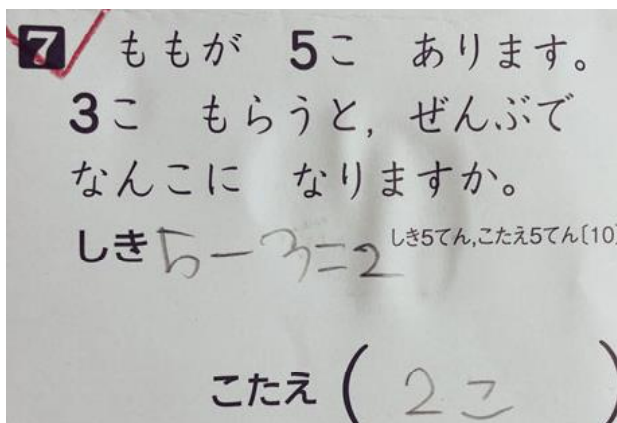 7 ももが 5こ あります。
3こ もらうと, ぜんぶで
なんこに なりますか。
しき 5-3=2 しき5てん,こたえ5てん〔10
こたえ ( 2こ )